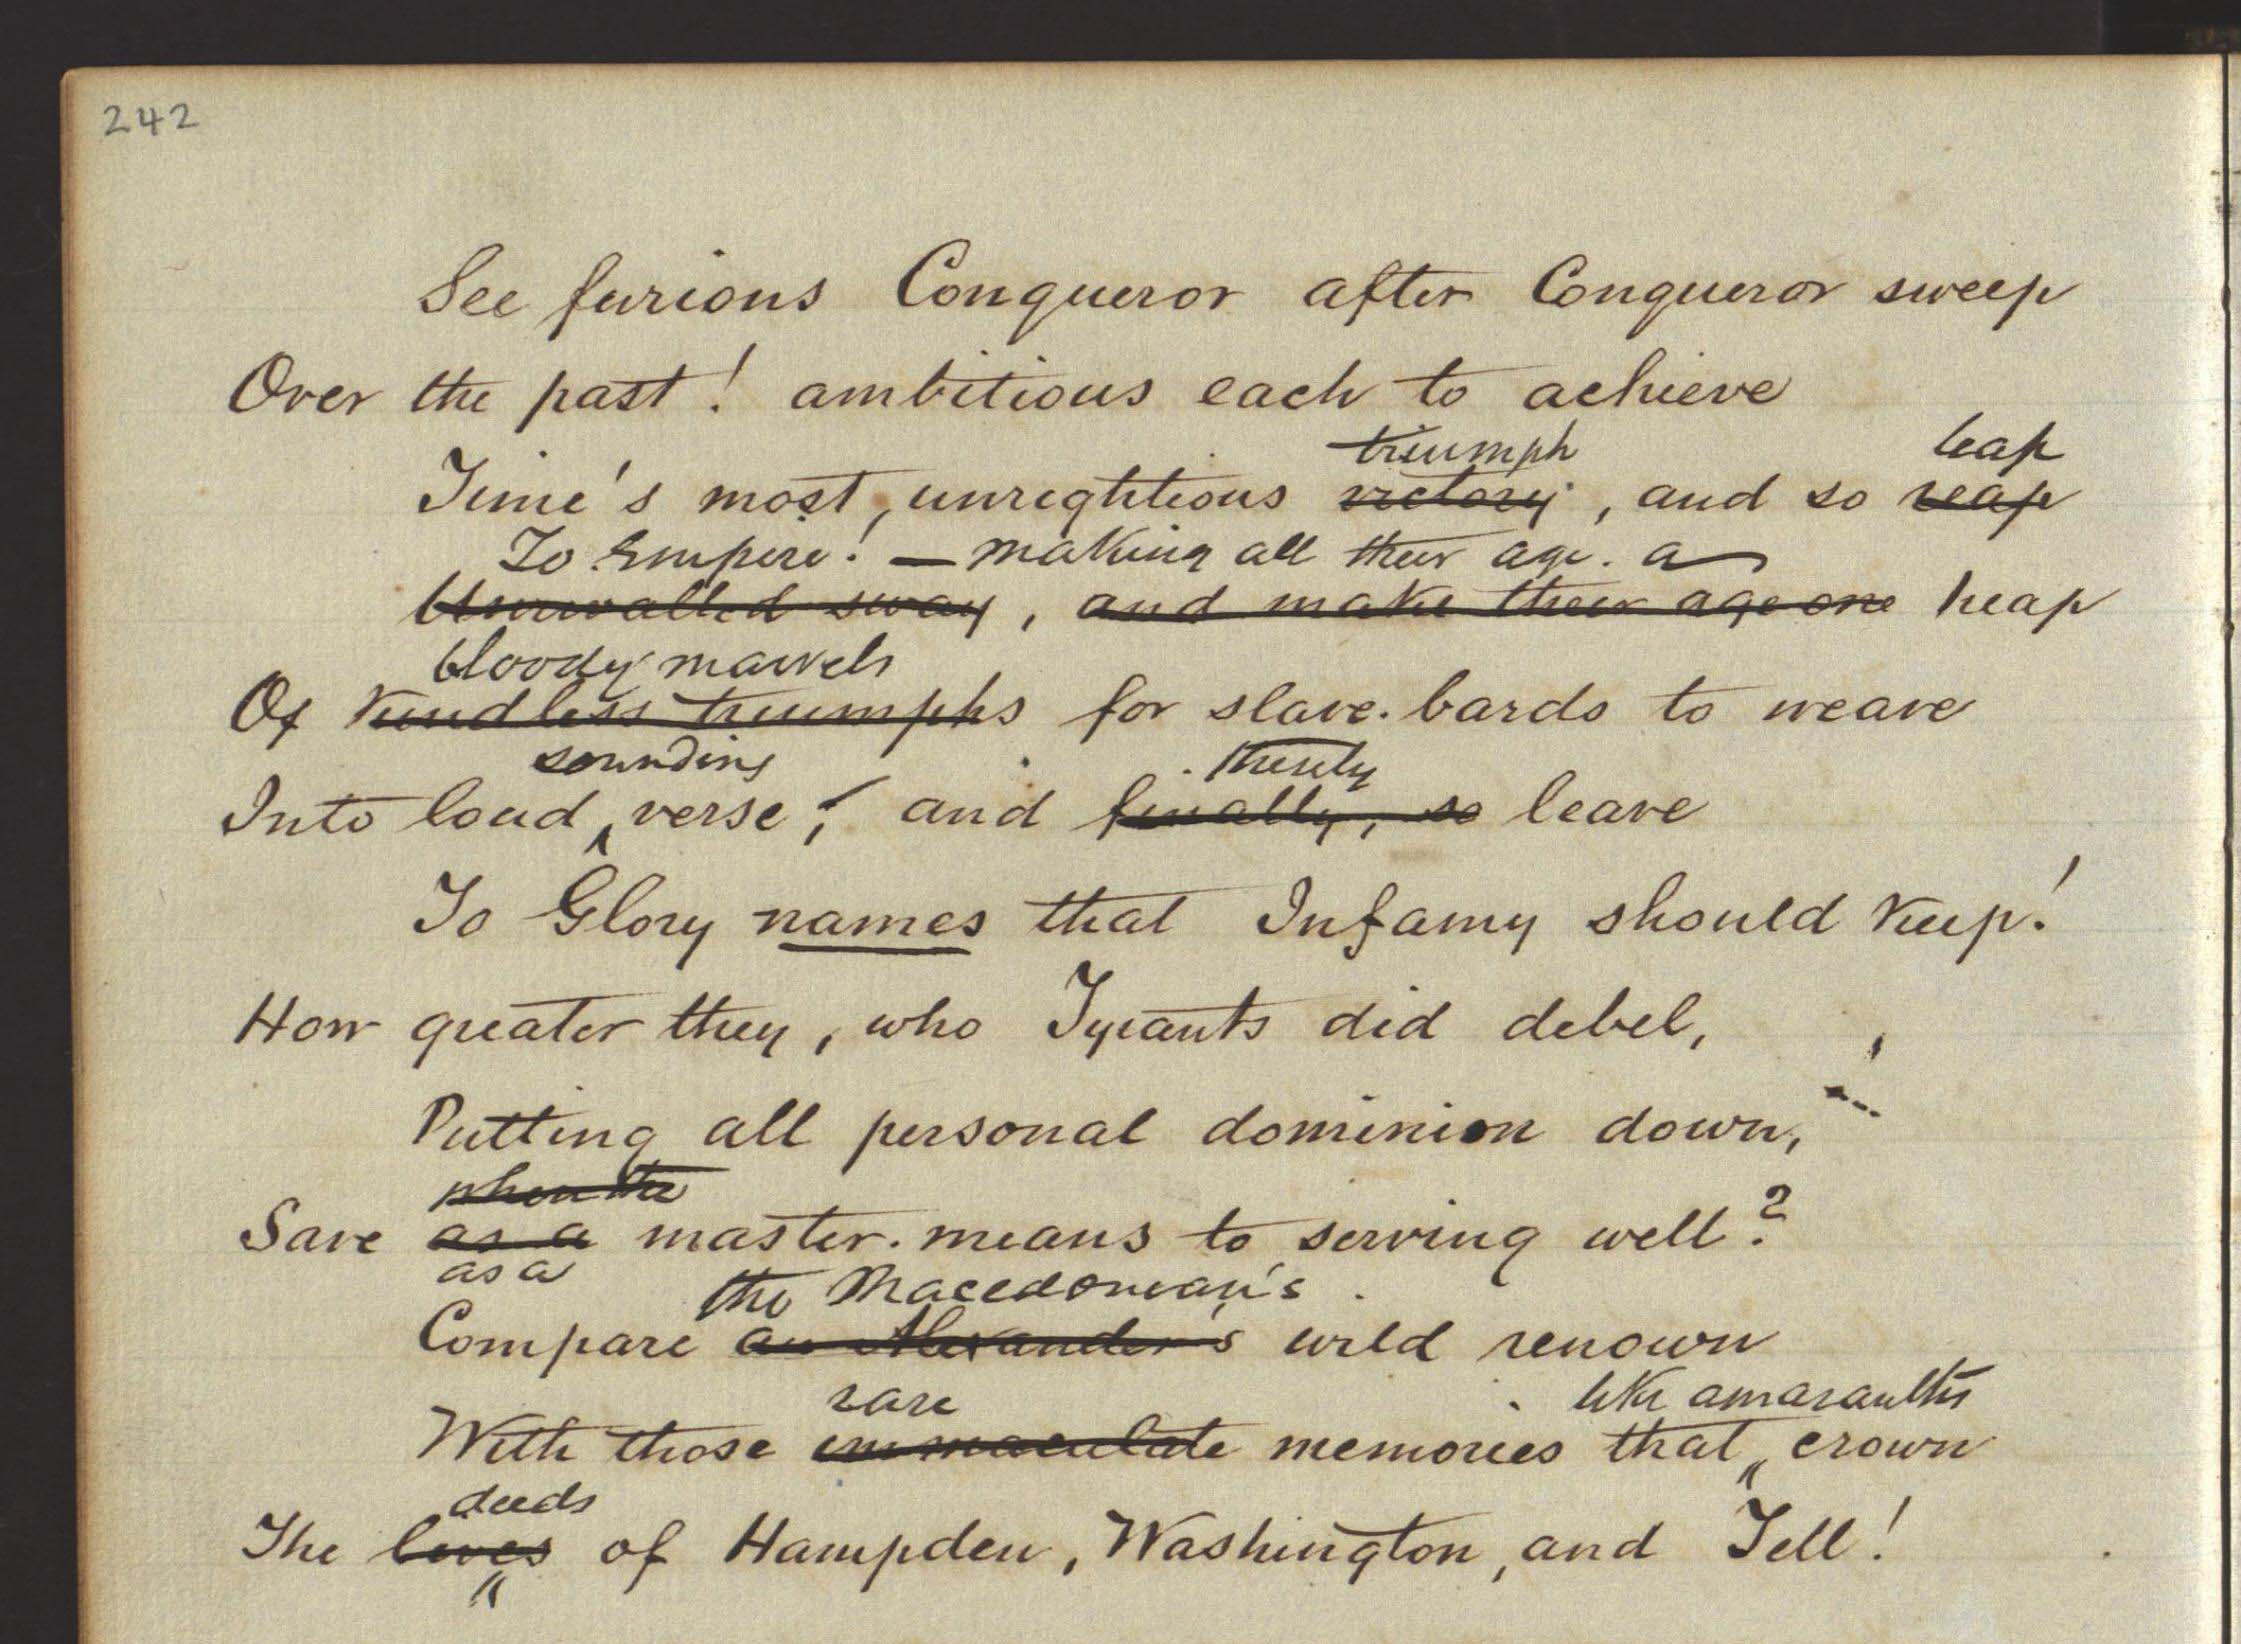 242
See furious Conqueror after Conqueror sweep
Over the past! ambitious each to achieve
triumph leap
Time's most, unrightious victory, and so reap
To Empire! — making all their age. a
Unrivalled sway, and make their age one heap
bloody marvels
Of kindless triumphs for slave-bards to weave
sounding thusly
Into loud verse; and finally, so leave
To Glory names that Infamy should keep!
How greater they, who Tyrants did debel,
Putting all personal dominion down,
when the
Save as a master-means to serving well?
as a
the Macedonian's
Compare an Alexander's wild renown
rare like amaranths
With those immaculate memories that crown
deeds
The lives of Hampden, Washington, and Tell!